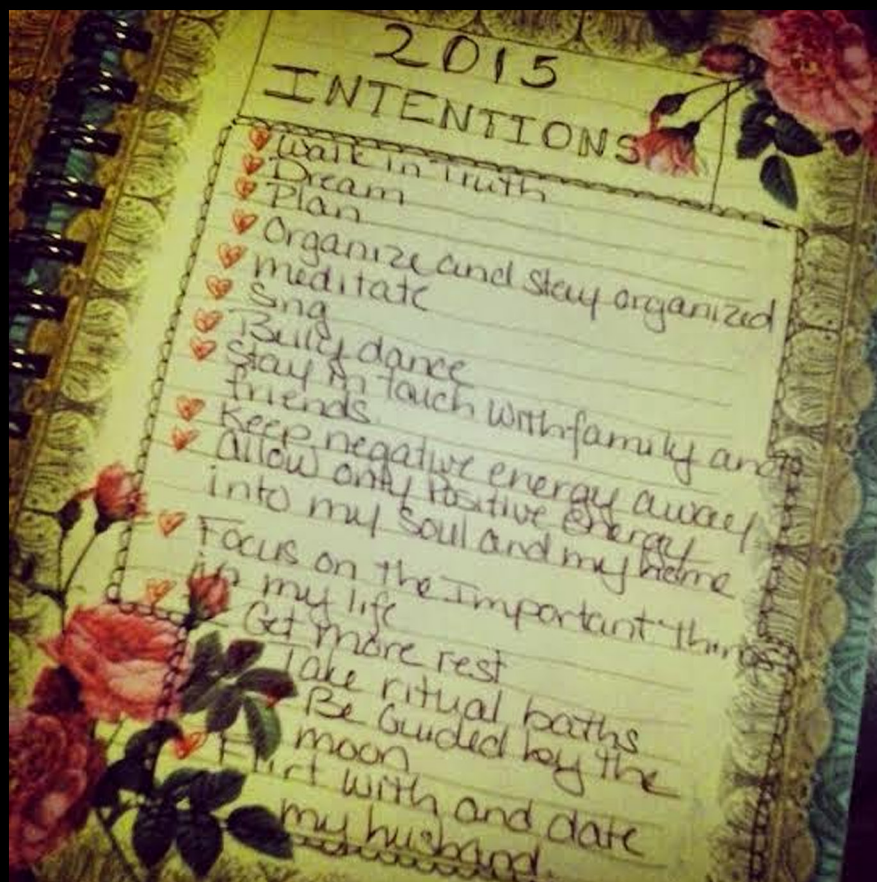 2015
INTENTIONS
Walk in Truth
Dream
Plan
Organize and Stay organized
meditate
Sing
Belly dance
Stay in touch with family and
friends.
Keep negative energy away
Allow only Positive Energy
into my Soul and my home
Focus on the Important things
in my life
Get more rest
Take ritual baths
Be Guided by the
moon
Flirt with and date
my husband.